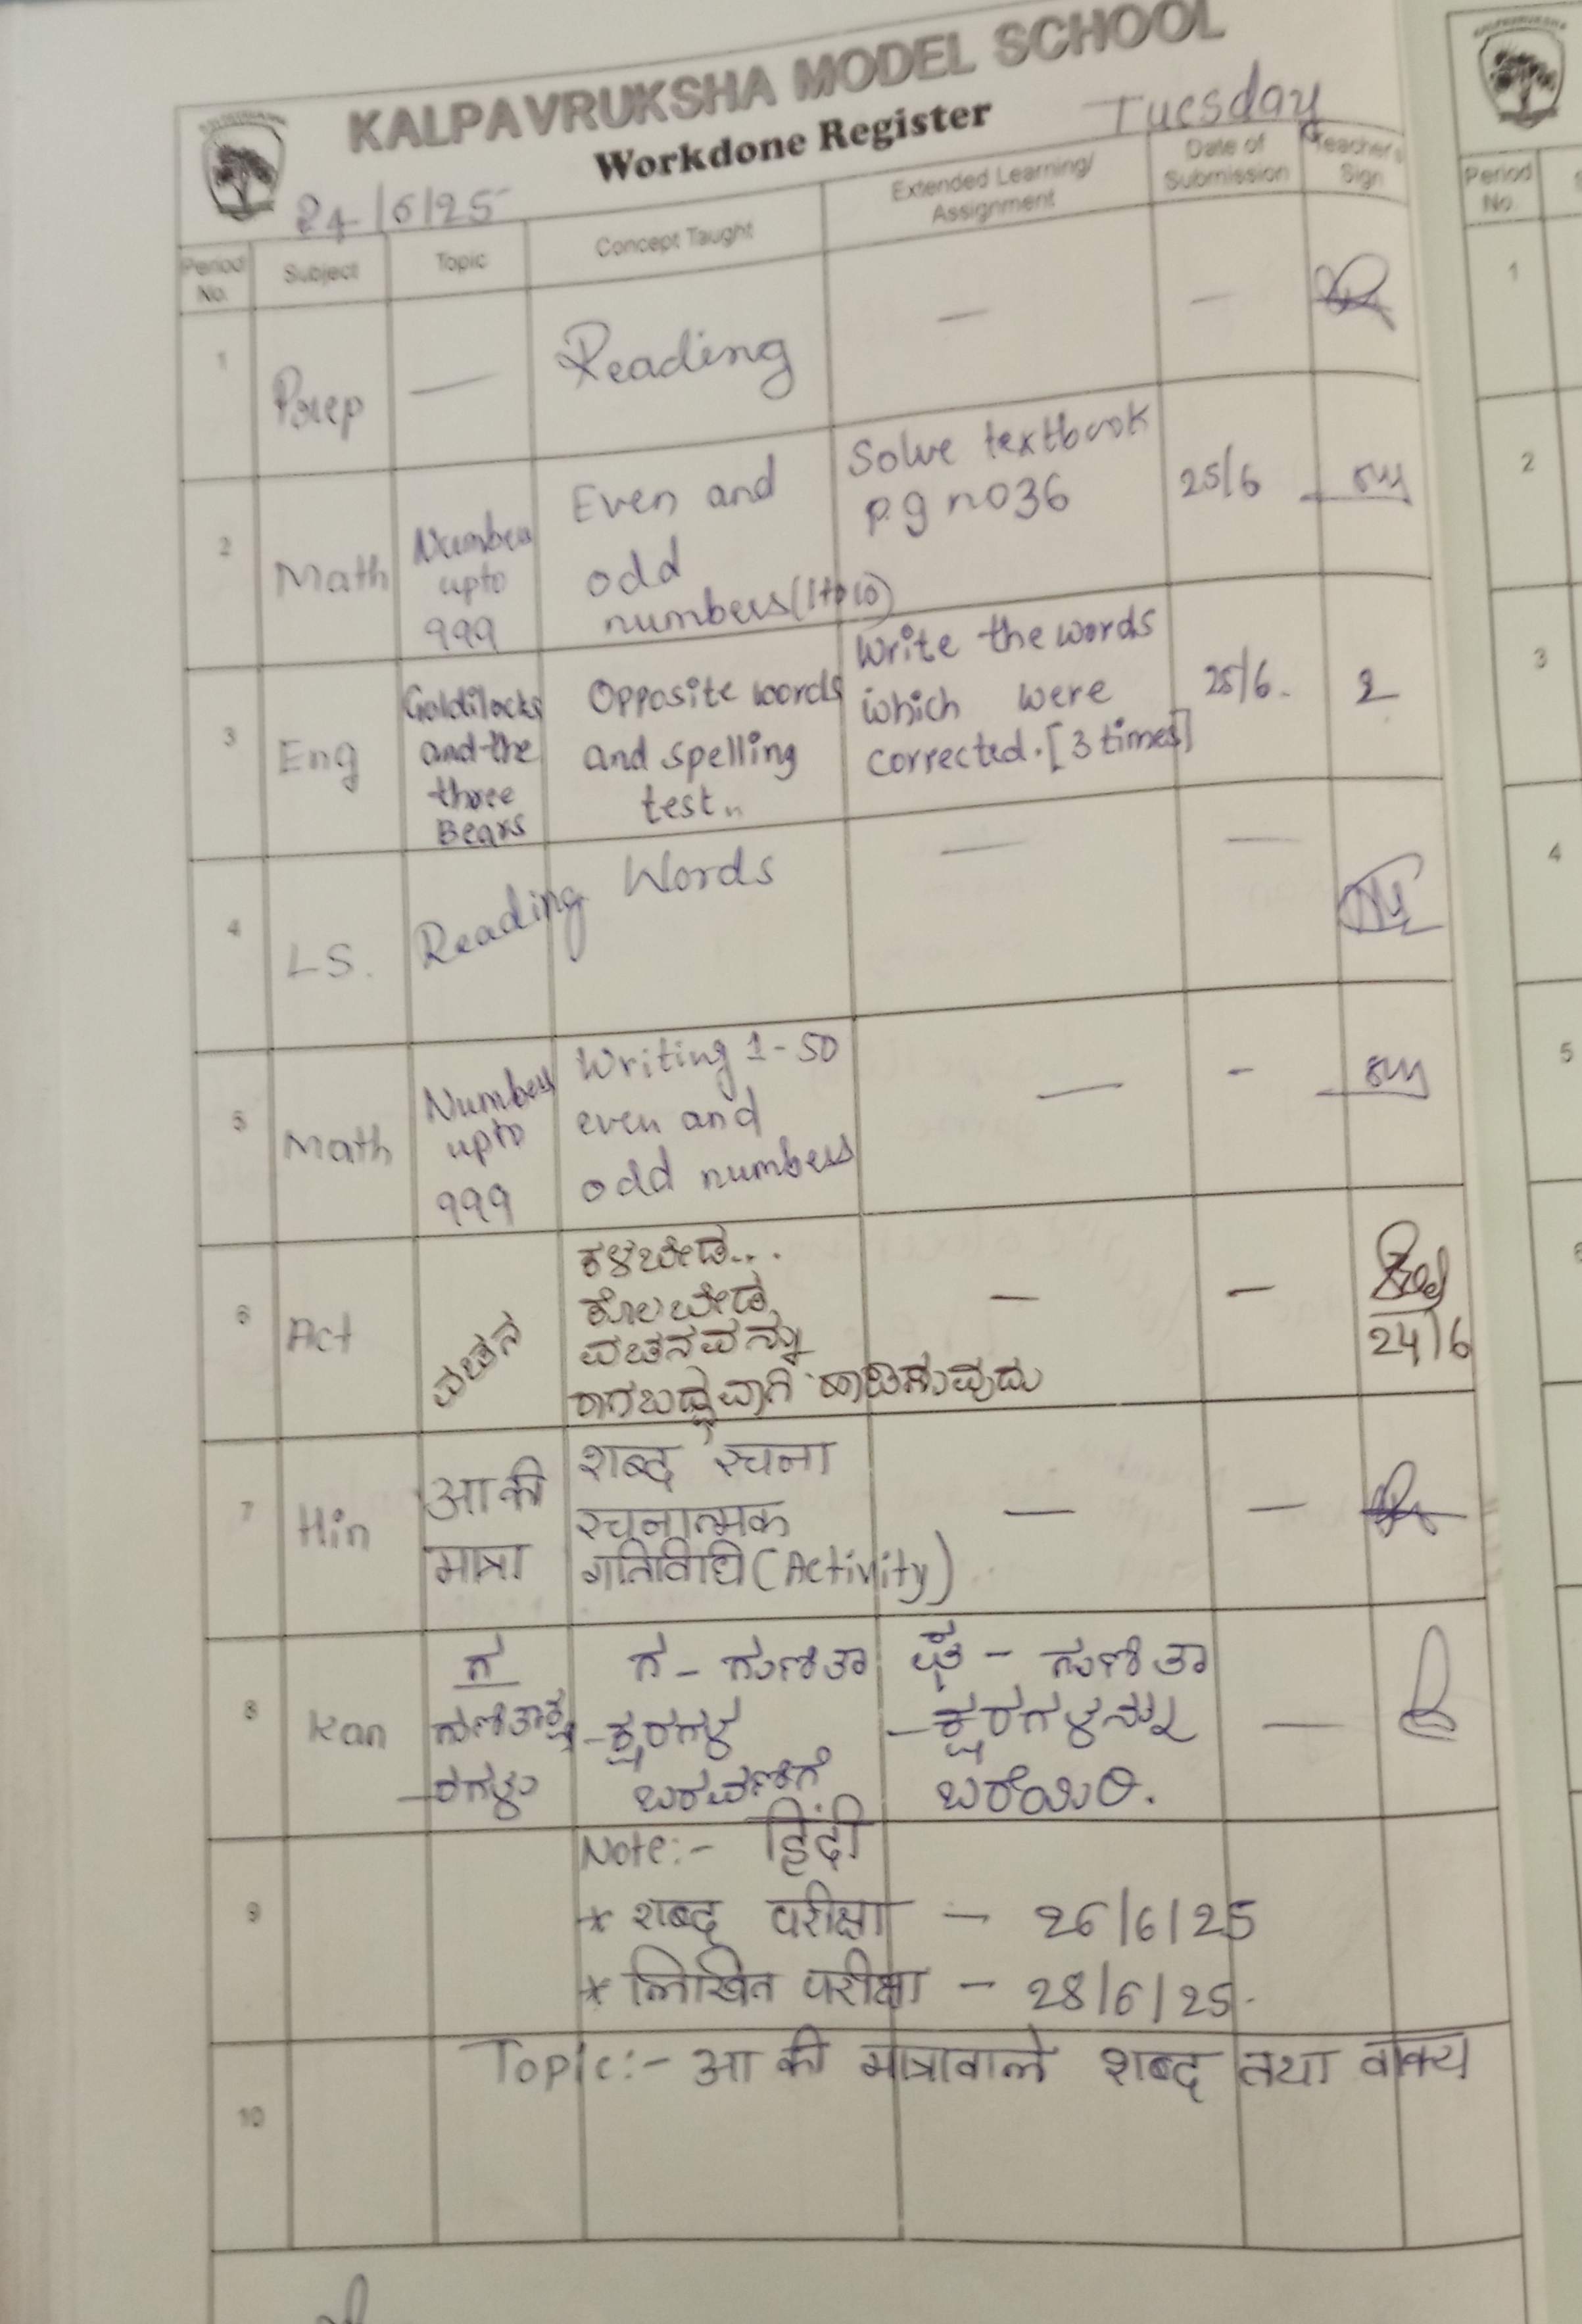 KALPAVRUKSHA MODEL SCHOOL
Workdone Register
Tuesday
24/6/25
Period No.
Subject
Topic
Concept Taught
Extended Learning/ Assignment
Date of Submission
Teacher's Sign
1
Prep
—
Reading
—
—
2
Math
Numbers
upto
999
Even and
odd
numbers(1to10)
Solve textbook
pg no36
25/6
3
Eng
Goldilocks
and the
three
Bears
Opposite words
and spelling
test..
Write the words
which were
corrected.[3 times]
25/6.
4
LS.
Reading Words
—
—
5
Math
Numbers
upto
999
Writing 1-50
even and
odd numbers
—
-
6
Act
ವಚನ
ಕಳಬೇಡ...
ಕೊಲಬೇಡ
ವಚನವನ್ನು
ರಾಗಬದ್ಧವಾಗಿ ಹಾಡಿಸುವುದು
—
—
24/6
7
Hin
आ की
मात्रा
शब्द रचना
रचनात्मक
गतिविधि (Activity)
—
—
8
Kan
ಗ
ಗುಣಿತಾಕ್ಷ
-ರಗಳು
ಗ - ಗುಣಿತಾ
-ಕ್ಷರಗಳ
ಬರವಣಿಗೆ
- ಗುಣಿತಾ
-ಕ್ಷರಗಳನ್ನು
ಬರೆಯಿರಿ.
—
9
Note:- हिंदी
* शब्द परीक्षा - 26/6/25
* लिखित परीक्षा - 28/6/25.
10
Topic:- आ की मात्रावाले शब्द तथा वाक्य
Period No.
1
2
3
4
5